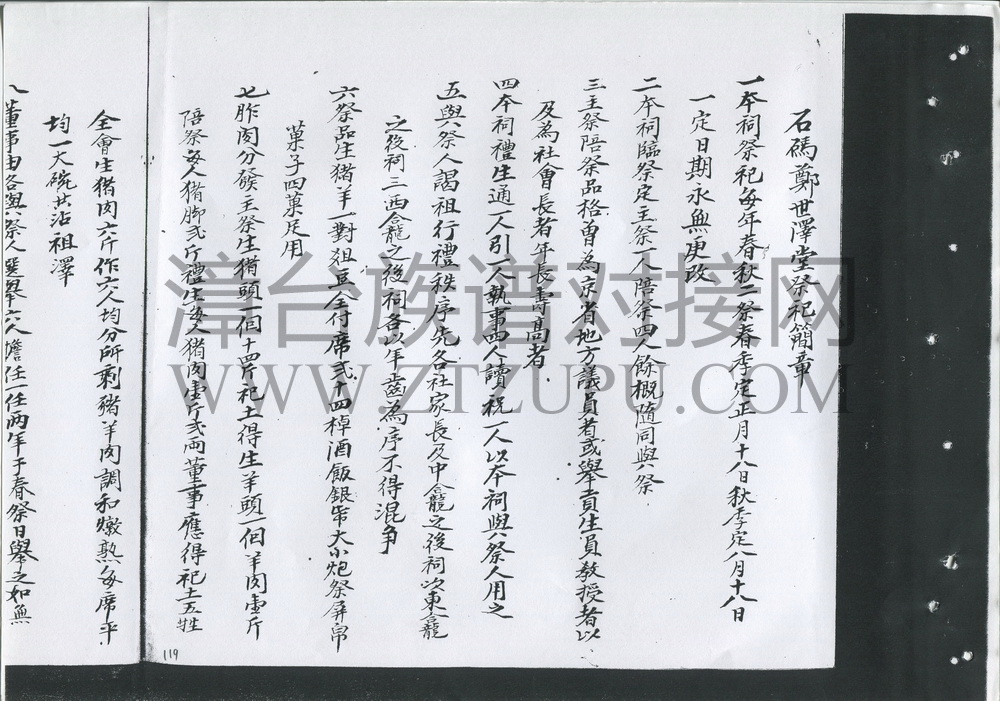 石碼鄭世澤堂祭祀簡章
一本祠祭祀每年春秋二祭春季定正月十八日秋季定八月十八日
一定日期永無更改
二本祠臨祭定主祭一人陪祭四人餘概隨同與祭
三主祭陪祭品格曾為京省地方議員者或舉貢生員教授者以
及為社會長者年長壽高者
四本祠禮生通一人引一人執事四人讀祝一人以本祠與祭人用之
五與祭人謁祖行禮秩序先各社家長及中龕之後祠以東龕
之後祠三西龕之後祠各以年齒為序不得混争
六祭品生猪羊一對俎豆全付席弍十四棹酒飯銀帋大小炮祭屏帛
菓子四菓足用
七胙肉分發主祭生猪頭一個十四斤祀土得生羊頭一個羊肉壹斤
陪祭每人猪脚弍斤禮生每人猪肉壹斤弍両董事應得祀土五牲
仝會生猪肉六斤作六人均分所剩豬羊肉調和燉熟每席平
均一大碗共沾祖澤
八董事由各與祭人選舉六人擔任一任两年于春祭日舉之如無
119
漳台族谱对接网
WWW.ZTZUPU.COM